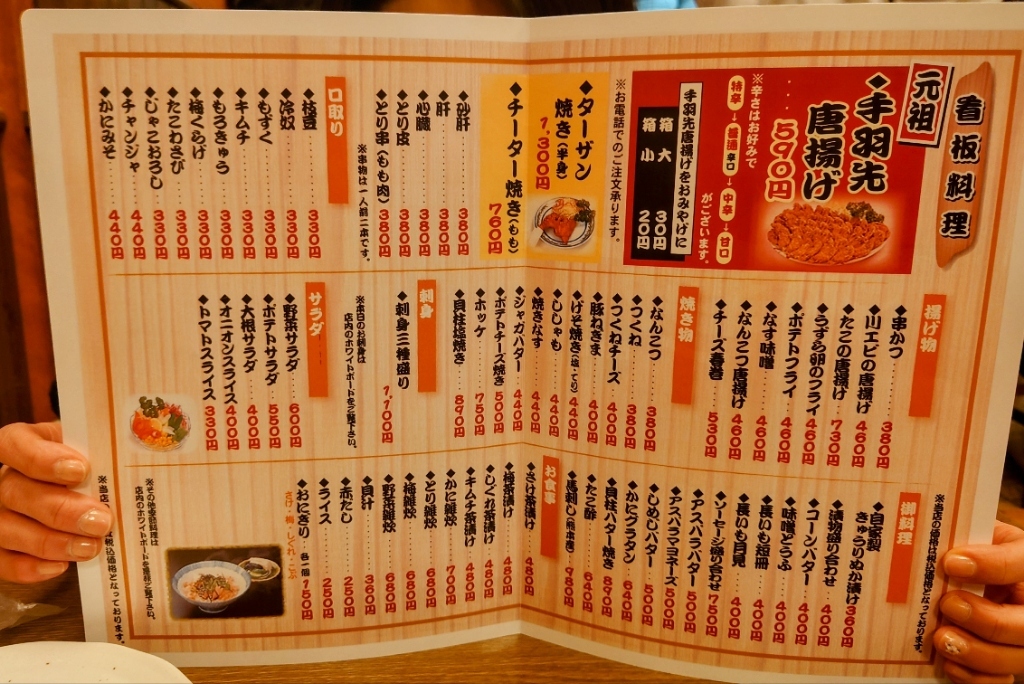 看板料理
元祖
◆手羽先
唐揚げ
590円
※辛さはお好みで
特辛→普通辛口→中辛→甘口
がございます。
手羽先唐揚げをおみやげに
箱 大 30円
箱 小 20円
※お電話でのご注文承ります。
◆ターザン
焼き(半身)
1,300円
◆チーター焼き(もも)
760円
◆砂肝 380円
◆肝 380円
◆心臓 380円
◆とり皮 380円
◆とり串(もも肉) 380円
※串物は一人前二本です。
口取り
◆枝豆 330円
◆冷奴 330円
◆もずく 330円
◆キムチ 330円
◆もろきゅう 330円
◆梅くらげ 330円
◆たこわさび 330円
◆じゃこおろし 330円
◆チャンジャ 440円
◆かにみそ 440円
揚げ物
◆串かつ 380円
◆川エビの唐揚げ 460円
◆たこの唐揚げ 730円
◆うずら卵のフライ 460円
◆ポテトフライ 460円
◆なす味噌 460円
◆なんこつ唐揚げ 460円
◆チーズ春巻 530円
焼き物
◆なんこつ 380円
◆つくね 380円
◆つくねチーズ 400円
◆豚ねぎま 400円
◆げそ焼き(塩・たり) 440円
◆ししゃも 440円
◆焼きなす 440円
◆ジャガバター 440円
◆ポテトチーズ焼き 500円
◆ホッケ 750円
◆貝柱塩焼き 890円
刺身
◆刺身三種盛り 1,100円
※本日のお刺身は
店内のホワイトボードをご覧下さい。
サラダ
◆野菜サラダ 600円
◆ポテトサラダ 550円
◆大根サラダ 400円
◆オニオンスライス 400円
◆トマトスライス 330円
※当店の価格は税込価格となっております。
御料理
◆自家製
きゅうりぬか漬け 360円
◆漬物盛り合わせ 400円
◆コーンバター 400円
◆味噌どうふ 400円
◆長いも短冊 400円
◆長いも月見 400円
◆ソーセージ盛り合わせ 750円
◆アスパラバター 500円
◆アスパラマヨネーズ 500円
◆しめじバター 500円
◆かにグラタン 640円
◆貝柱バター焼き 890円
◆たこ酢 640円
◆馬刺し 980円
お食事
◆さけ茶漬け 480円
◆梅茶漬け 480円
◆しぐれ茶漬け 480円
◆キムチ茶漬け 480円
◆かに雑炊 700円
◆とり雑炊 680円
◆梅雑炊 680円
◆野菜雑炊 680円
◆貝汁 360円
◆赤だし 250円
◆ライス 250円
◆おにぎり 各一個 150円
さけ・梅・しぐれ・こぶ
※その他季節料理は
店内のホワイトボードを御覧下さい。
※当店
税込価格となっております。